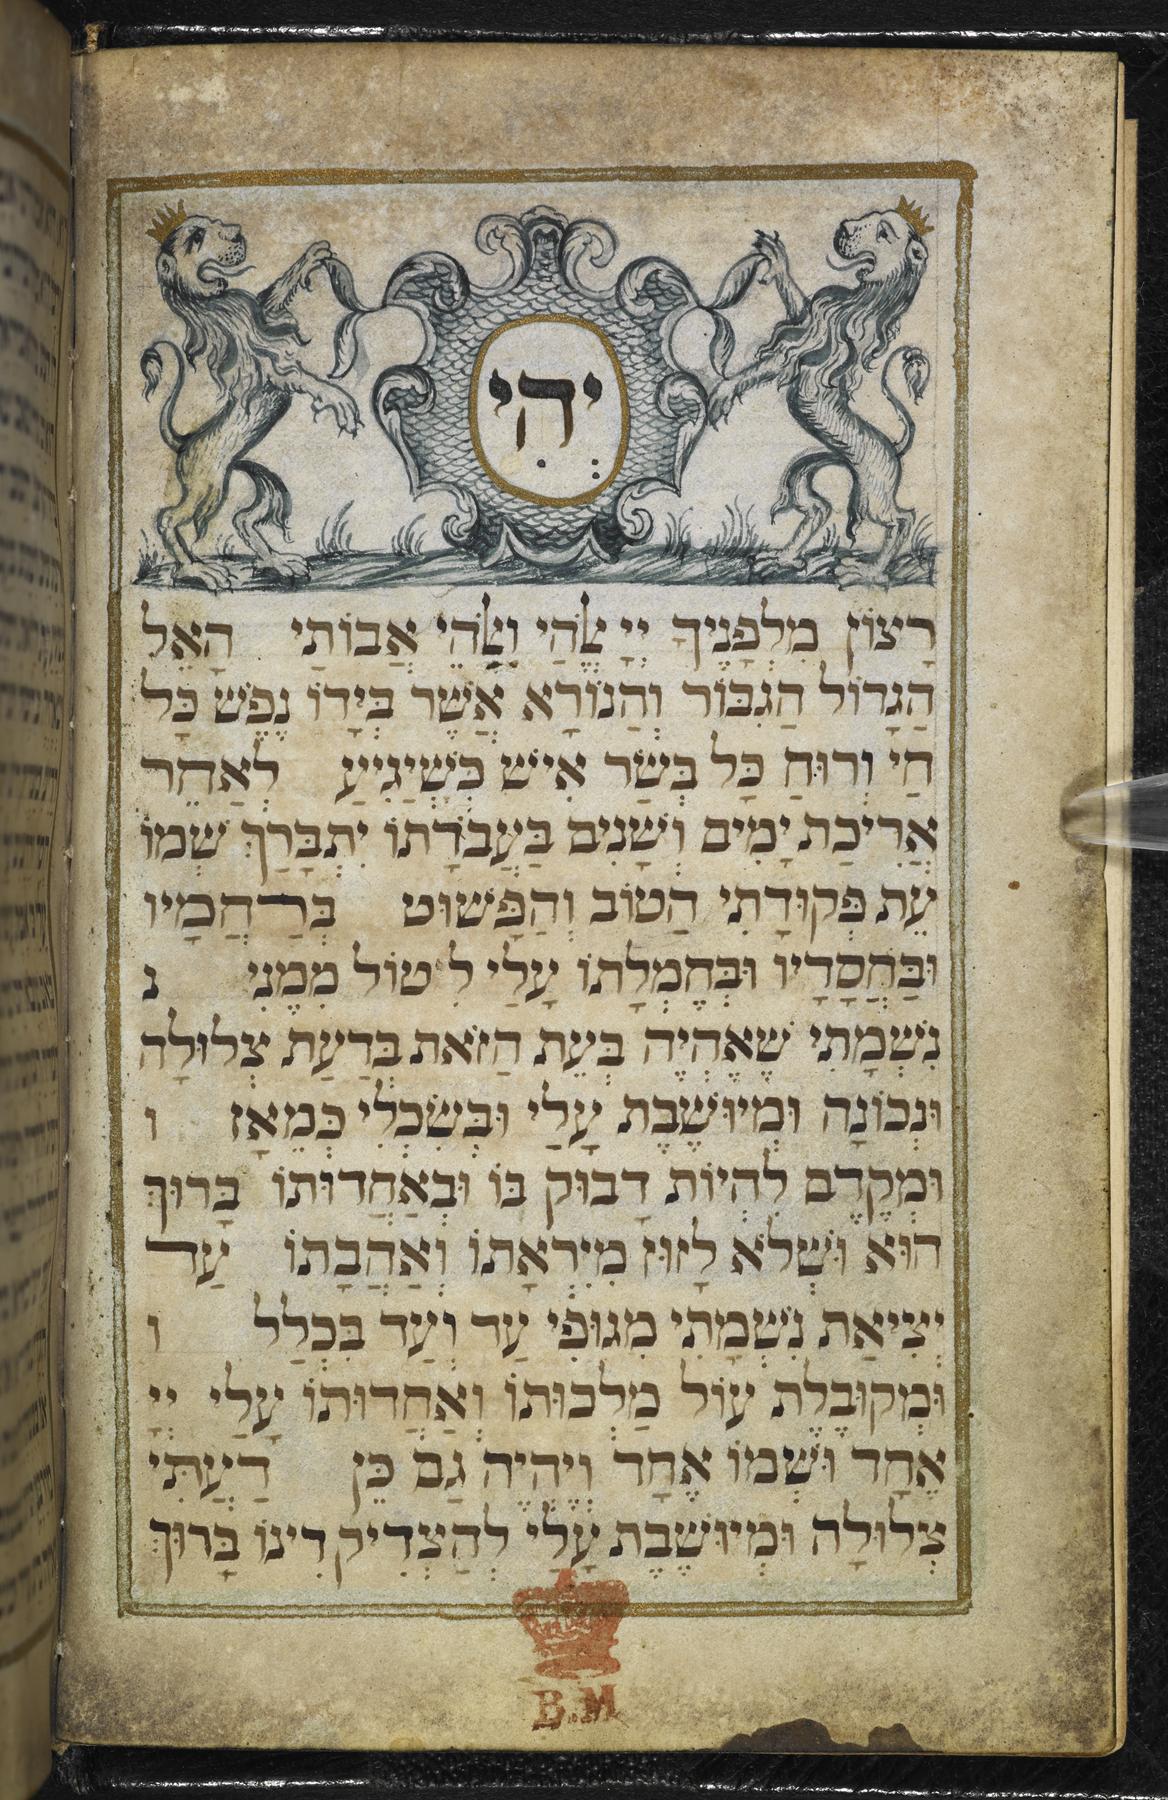 יְהִי
רָצוֹן מִלְּפָנֶיךָ יְיָ אֱלֹהַי וֵאלֹהֵי אֲבוֹתַי הָאֵל
הַגָּדוֹל הַגִּבּוֹר וְהַנּוֹרָא אֲשֶׁר בְּיָדוֹ נֶפֶשׁ כָּל
חַי וְרוּחַ כָּל בְּשַׂר אִישׁ כְּשֶׁיַגִיעַ לְאַחֵר
אֲרִיכַת יָמִים וְשָׁנִים בַּעֲבֹדָתוֹ יִתְבָּרַךְ שְׁמוֹ
עֵת פְּקוּדָתִי הַטוֹב וְהַפָּשׁוּט בְּרַחֲמָיו
וּבַחֲסָדָיו וּבְחֶמְלָתוֹ עָלַי לִיטוֹל מִמֶנִי נ
נִשְׁמָתִי שֶׁאֶהְיֶה בְּעֵת הַזֹאת בְּדַעַת צְלוּלָה
וּנְכוֹנָה וּמְיוּשֶׁבֶת עָלַי וּבְשִׂכְלִי כְּמֵאָז ו
וּמְקֶדֶם לִהְיוֹת דָבוּק בּוֹ וּבְאַחֲדוּתוֹ בָּרוּךְ
הוּא וְשֶׁלֹא לָזוּז מִיִרְאָתוֹ וְאַהֲבָתוֹ עַד
יְצִיאַת נִשְׁמָתִי מִגוּפִי עַד וְעַד בִּכְלַל ו
וּמְקוּבֶּלֶת עוֹל מַלְכוּתוֹ וְאַחֲדוּתוֹ עָלַי יְיָ
אֶחָד וּשְׁמוֹ אֶחָד וְיִהְיֶה גַם כֵּן דַעֲתִּי
צְלוּלָה וּמְיוּשֶׁבֶת עָלַי לְהַצְדִיק דִינוֹ בָּרוּךְ
B.M